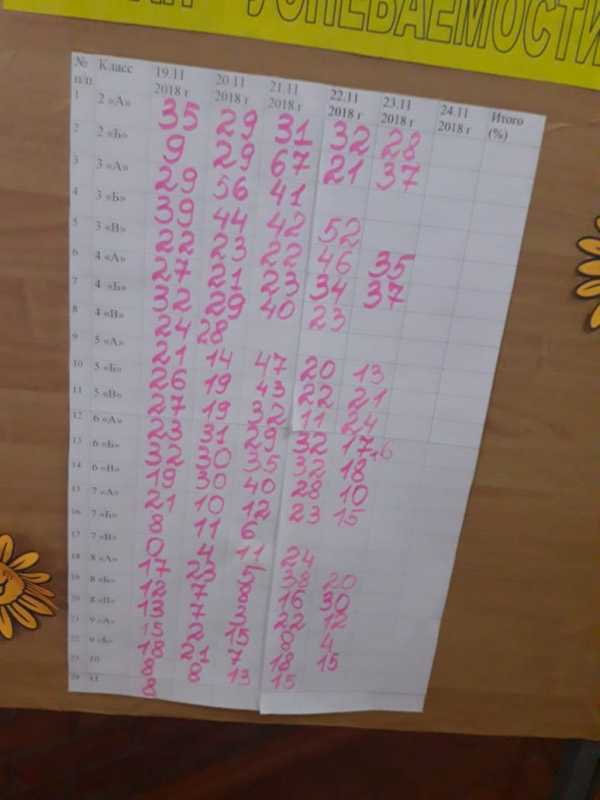 УСПЕВАЕМОСТИ
№ п/п Класс 19.11 2018 г 20.11 2018 г 21.11 2018 г 22.11 2018 г 23.11 2018 г 24.11 2018 г Итого (%)
1 2 «А» 35 29 31 32 28
2 2 «Б» 9 29 67 21 37
3 3 «А» 29 56 41
4 3 «Б» 39 44 42 52
5 3 «В» 22 23 22 46 35
6 4 «А» 27 21 23 34 37
7 4 «Б» 32 29 40 23
8 4 «В» 24 28
9 5 «А» 21 14 47 20 13
10 5 «Б» 26 19 43 22 21
11 5 «В» 27 19 32 11 24
12 6 «А» 23 31 29 32 17,6
13 6 «Б» 32 30 35 32 18
14 6 «В» 19 30 40 28 10
15 7 «А» 21 10 12 23 15
16 7 «Б» 8 11 6
17 7 «В» 0 4 11 24
18 8 «А» 17 23 38 20
19 8 «Б» 12 7 8 16 30
20 8 «В» 13 7 22 12
21 9 «А» 15 22 15 8 4
22 9 «Б» 18 21 7 18 15
23 10 8 8 13 15
24 11 8